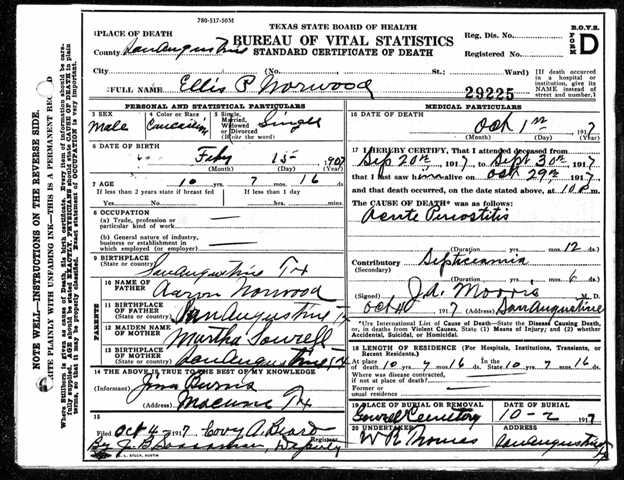 780-517-50M
TEXAS STATE BOARD OF HEALTH
BUREAU OF VITAL STATISTICS
STANDARD CERTIFICATE OF DEATH
B.O.V.S.
FORM D
Reg. Dis. No.
Registered No.
PLACE OF DEATH
County San Augustine
City (No. St.; Ward) [If death occurred in a hospital or institution, give its NAME instead of street and number.]
FULL NAME Ellis P Norwood 29225
PERSONAL AND STATISTICAL PARTICULARS
3 SEX Male
4 Color or Race
5 Single, Married, Widowed or Divorced (Write the word) Single
6 DATE OF BIRTH
Feby 15 1907
(Month) (Day) (Year)
7 AGE 10 7 16 ds.
If less than 2 years state if breast fed If less than 1 day hrs. mins.
8 OCCUPATION
(a) Trade, profession or particular kind of work
(b) General nature of industry, business or establishment in which employed (or employer)
9 BIRTHPLACE (State or country) San Augustine Tx
PARENTS
10 NAME OF FATHER Aaron Norwood
11 BIRTHPLACE OF FATHER (State or country) San Augustine Tx
12 MAIDEN NAME OF MOTHER Martha Sowell
13 BIRTHPLACE OF MOTHER (State or country) San Augustine Tx
14 THE ABOVE IS TRUE TO THE BEST OF MY KNOWLEDGE
(Informant) Jim Burris
(Address) Tx
15
Filed Oct 4 1917 Covy A. Beard
Registrar
By Deputy
MEDICAL PARTICULARS
16 DATE OF DEATH
Oct 1 1917
(Month) (Day) (Year)
17 I HEREBY CERTIFY, That I attended deceased from
Sep 20th, 1917 Sept 30th, 1917
that I last saw him alive on 29th 1917
and that death occurred, on the date stated above, at 10 m.
The CAUSE OF DEATH* was as follows:
Acute
(Duration) yrs. mos. 12 ds.
Contributory Septicaemia
(Secondary)
(Duration) yrs. mos. 6 ds.
(Signed) J.A. Moore M. D.
Oct 1917 (Address) San Augustine
*Use International List of Cause of Death—State the Disease Causing Death, or in deaths from Violent Causes, State (1) Means of Injury; and (2) whether Accidental, Suicidal, or Homicidal.
18 LENGTH OF RESIDENCE (For Hospitals, Institutions, Transients, or Recent Residents.)
At place of death 10 7 16 ds. In the State 10 7 16 ds.
Where was disease contracted, if not at place of death?
Former or usual residence
19 PLACE OF BURIAL OR REMOVAL DATE OF BURIAL
Sowell Cemetery 10-2 1917
20 UNDERTAKER ADDRESS
San Augustine Tx
NOTE WELL—INSTRUCTIONS ON THE REVERSE SIDE.
WRITE PLAINLY WITH UNFADING INK—THIS IS A PERMANENT RECORD